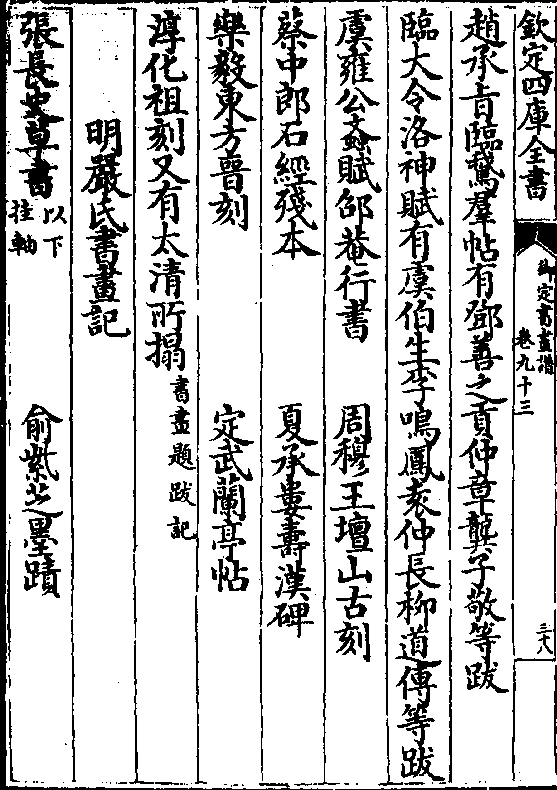 欽定四庫全書
御定書畫譜
卷九十三
三十八
趙承旨臨鵞羣帖有鄧善之貢仲章龔子敬等跋
臨大令洛神賦有虞伯生李鳴鳳袁仲長柳道傳等跋
虞雍公蟲賦邵菴行書 周穆王壇山古刻
蔡中郎石經殘本 夏承婁壽漢碑
樂毅東方晉刻 定武蘭亭帖
淳化祖刻又有太清所搨 書畫題跋記
明嚴氏書畫記
張長史草書 以下挂軸 俞紫芝墨蹟